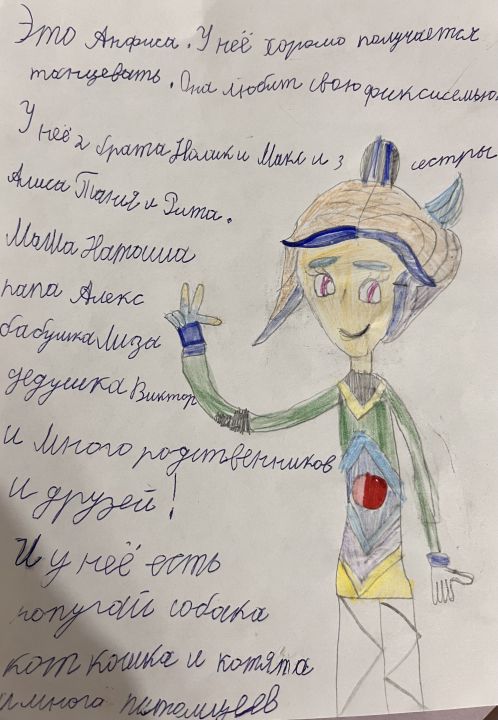 Это Анфиса. У неё хорошо получается
танцевать. Она любит свою фиксисемью.
У неё 2 брата Нолик и Макс и 3 сестры
Алиса Тания и Рита.
Мама Наташа
папа Алекс
бабушка Лиза
дедушка Виктор
и много родственников
и друзей!
И у неё есть
попугай собака
кот кошка и котята
и много питомцев